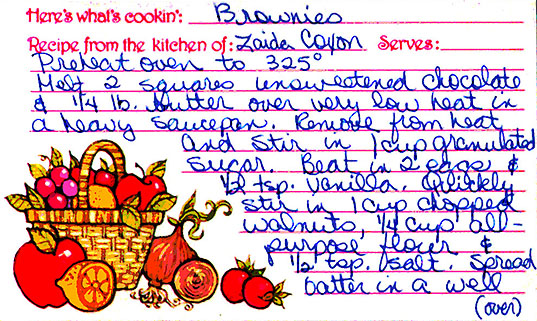 Here's what's cookin': Brownies
Recipe from the kitchen of: Zaida Coxon Serves:
Preheat oven to 325°
Melt 2 squares unsweetened chocolate
& 1/4 lb. butter over very low heat in
a heavy saucepan. Remove from heat
and stir in 1 cup granulated
sugar. Beat in 2 eggs &
1/2 tsp. vanilla. Quickly
stir in 1 cup chopped
walnuts, 1/4 cup all-
purpose flour &
1/2 tsp. salt. Spread
batter in a well
(over)